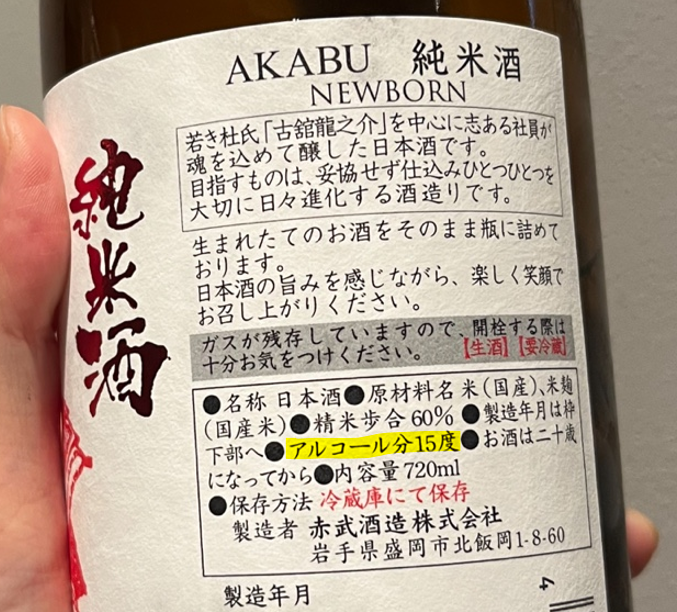 AKABU 純米酒
NEWBORN
純米酒
若き杜氏「古舘龍之介」を中心に志ある社員が
魂を込めて醸した日本酒です。
目指すものは、妥協せず仕込みひとつひとつを
大切に日々進化する酒造りです。
生まれたてのお酒をそのまま瓶に詰めて
おります。
日本酒の旨みを感じながら、楽しく笑顔で
お召し上がりください。
ガスが残存していますので、開栓する際は
十分お気をつけください。【生酒】【要冷蔵】
●名称 日本酒●原材料名 米(国産)、米麹
(国産米)●精米歩合 60%●製造年月は枠
下部へ●アルコール分15度●お酒は二十歳
になってから●内容量 720ml
●保存方法 冷蔵庫にて保存
製造者 赤武酒造株式会社
岩手県盛岡市北飯岡1-8-60
製造年月
4